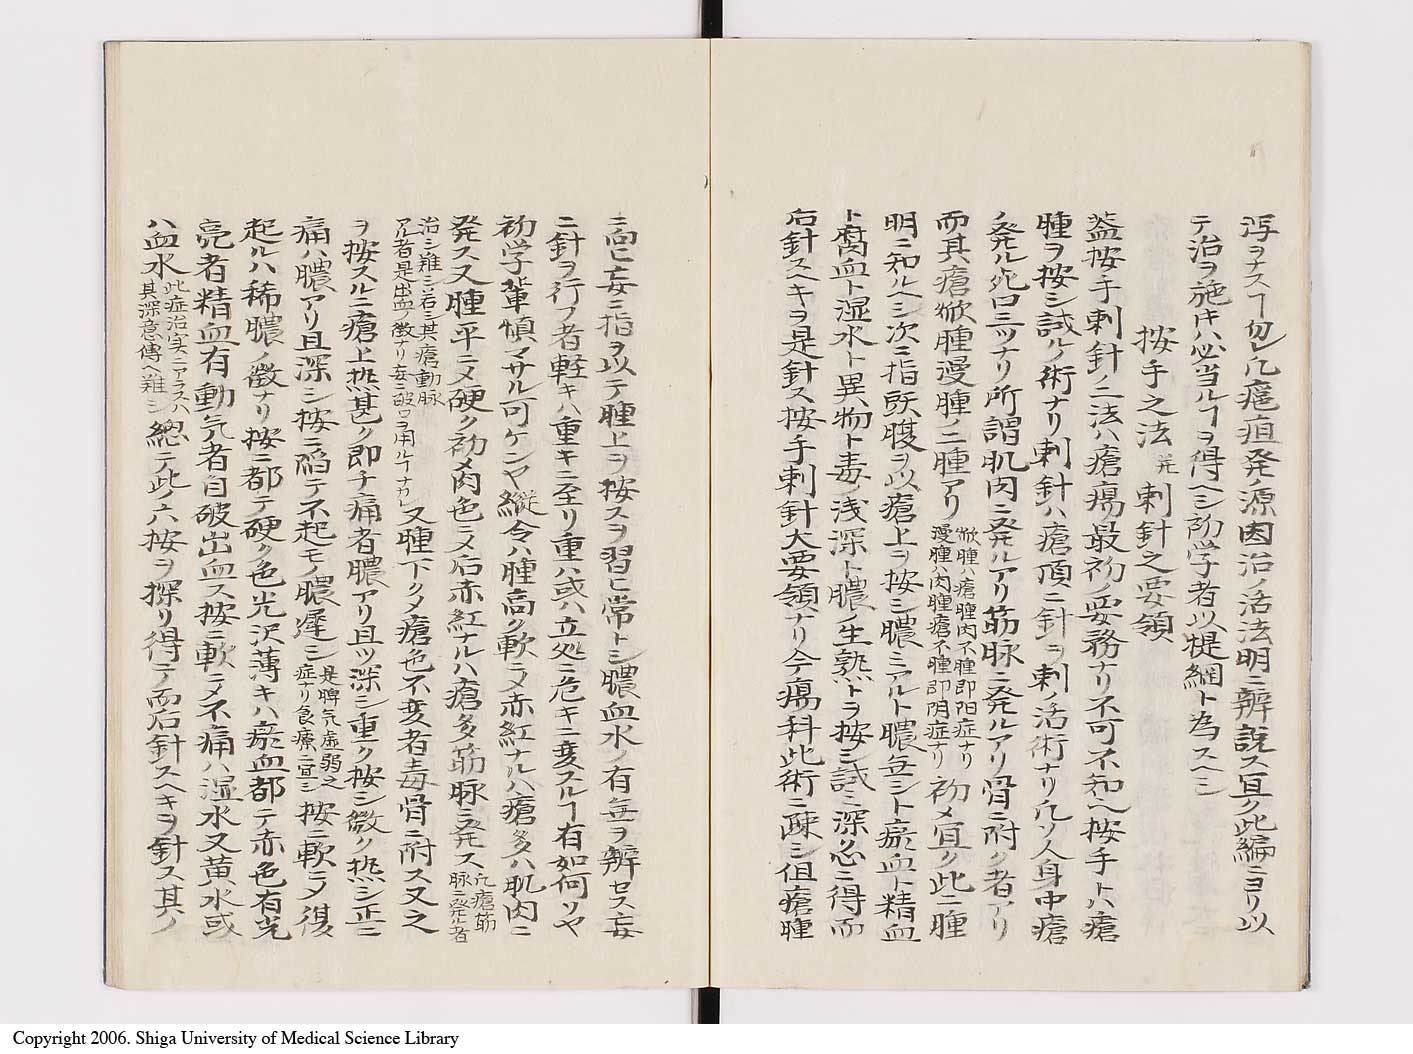 浮ヲナスヿ勿レ凡瘡疽発ノ源因治ノ活法明ニ辨説ス宜ク此編ニヨリ以
テ治ヲ施サハ必当ルヿヲ得ヘシ初学者以提綱ト為スヘシ
按手之法 并 刺針之要領
蓋按手刺針ノ二法ハ瘡瘍最初ノ要務ナリ不可不知ヘ按手トハ瘡
腫ヲ按シ試ルノ術ナリ刺針ハ瘡頂ニ針ヲ刺ノ活術ナリ凡ソ人身中瘡
ノ発ル処ロ三ツナリ所謂肌肉ニ発ルアリ筋脉ニ発ルアリ骨ニ附ク者アリ
而其瘡焮腫漫腫ノ二腫アリ 焮腫ハ瘡腫肉不腫即阳症ナリ 漫腫ハ肉腫瘡不腫即阴症ナリ 初メ宜ク此二腫
明ニ知ルヘシ次ニ指趺腹ヲ以瘡上ヲ按シ膿ミアルト膿無シト瘀血ト精血
ト腐血ト湿水ト異物ト毒ノ浅深ト膿ノ生熟トヲ按シ試ミ深ク心ニ得而
后針スヘキヲ是針ス按手刺針大要領ナリ今瘍科此術ニ疎シ但瘡腫
ニ向ヒ妄ニ指ヲ以テ腫上ヲ按スヲ習ヒ常トシ膿血水ノ有無ヲ辨セス妄
ニ針ヲ行フ者軽キハ重キニ至リ重ハ或ハ立処ニ危キニ変スルヿ有如何ソヤ
初学輩慎マサル可ケンヤ縦令ハ腫高ク軟ニメ赤紅ナルハ瘡多ハ肌肉ニ
発ス又腫平ニメ硬ク初メ肉色ニメ后赤紅ナルハ瘡多筋脉ニ発ス 凡瘡筋脉ニ発ル者
治シ難シ若シ其瘡動脉アル者是出血ノ徴ナリ妄ニ破口ヲ用ルヿナカレ 又腫下クメ瘡色不変者毒骨ニ附ス又之
ヲ按スルニ瘡上熱甚ク即チ痛者膿アリ且ツ深シ重ク按シ微ク熱シ正ニ
痛ハ膿アリ且深シ按ニ陥テ不起モノ膿遅シ 是脾気虚弱之症ナリ食療ニ宜シ 按ニ軟ニメ復
起ルハ稀膿ノ徴ナリ按ニ都テ硬ク色光沢薄キハ瘀血都テ赤色有光
亮者精血有動気者自破出血ス按ニ軟ニメ不痛ハ湿水又黄水或
ハ血水 此症治実ニアラスハ其深意傳ヘ難シ 総テ此ノ六按ヲ探リ得テ而后針スヘキヲ針ス其ノ
Copyright 2006. Shiga University of Medical Science Library